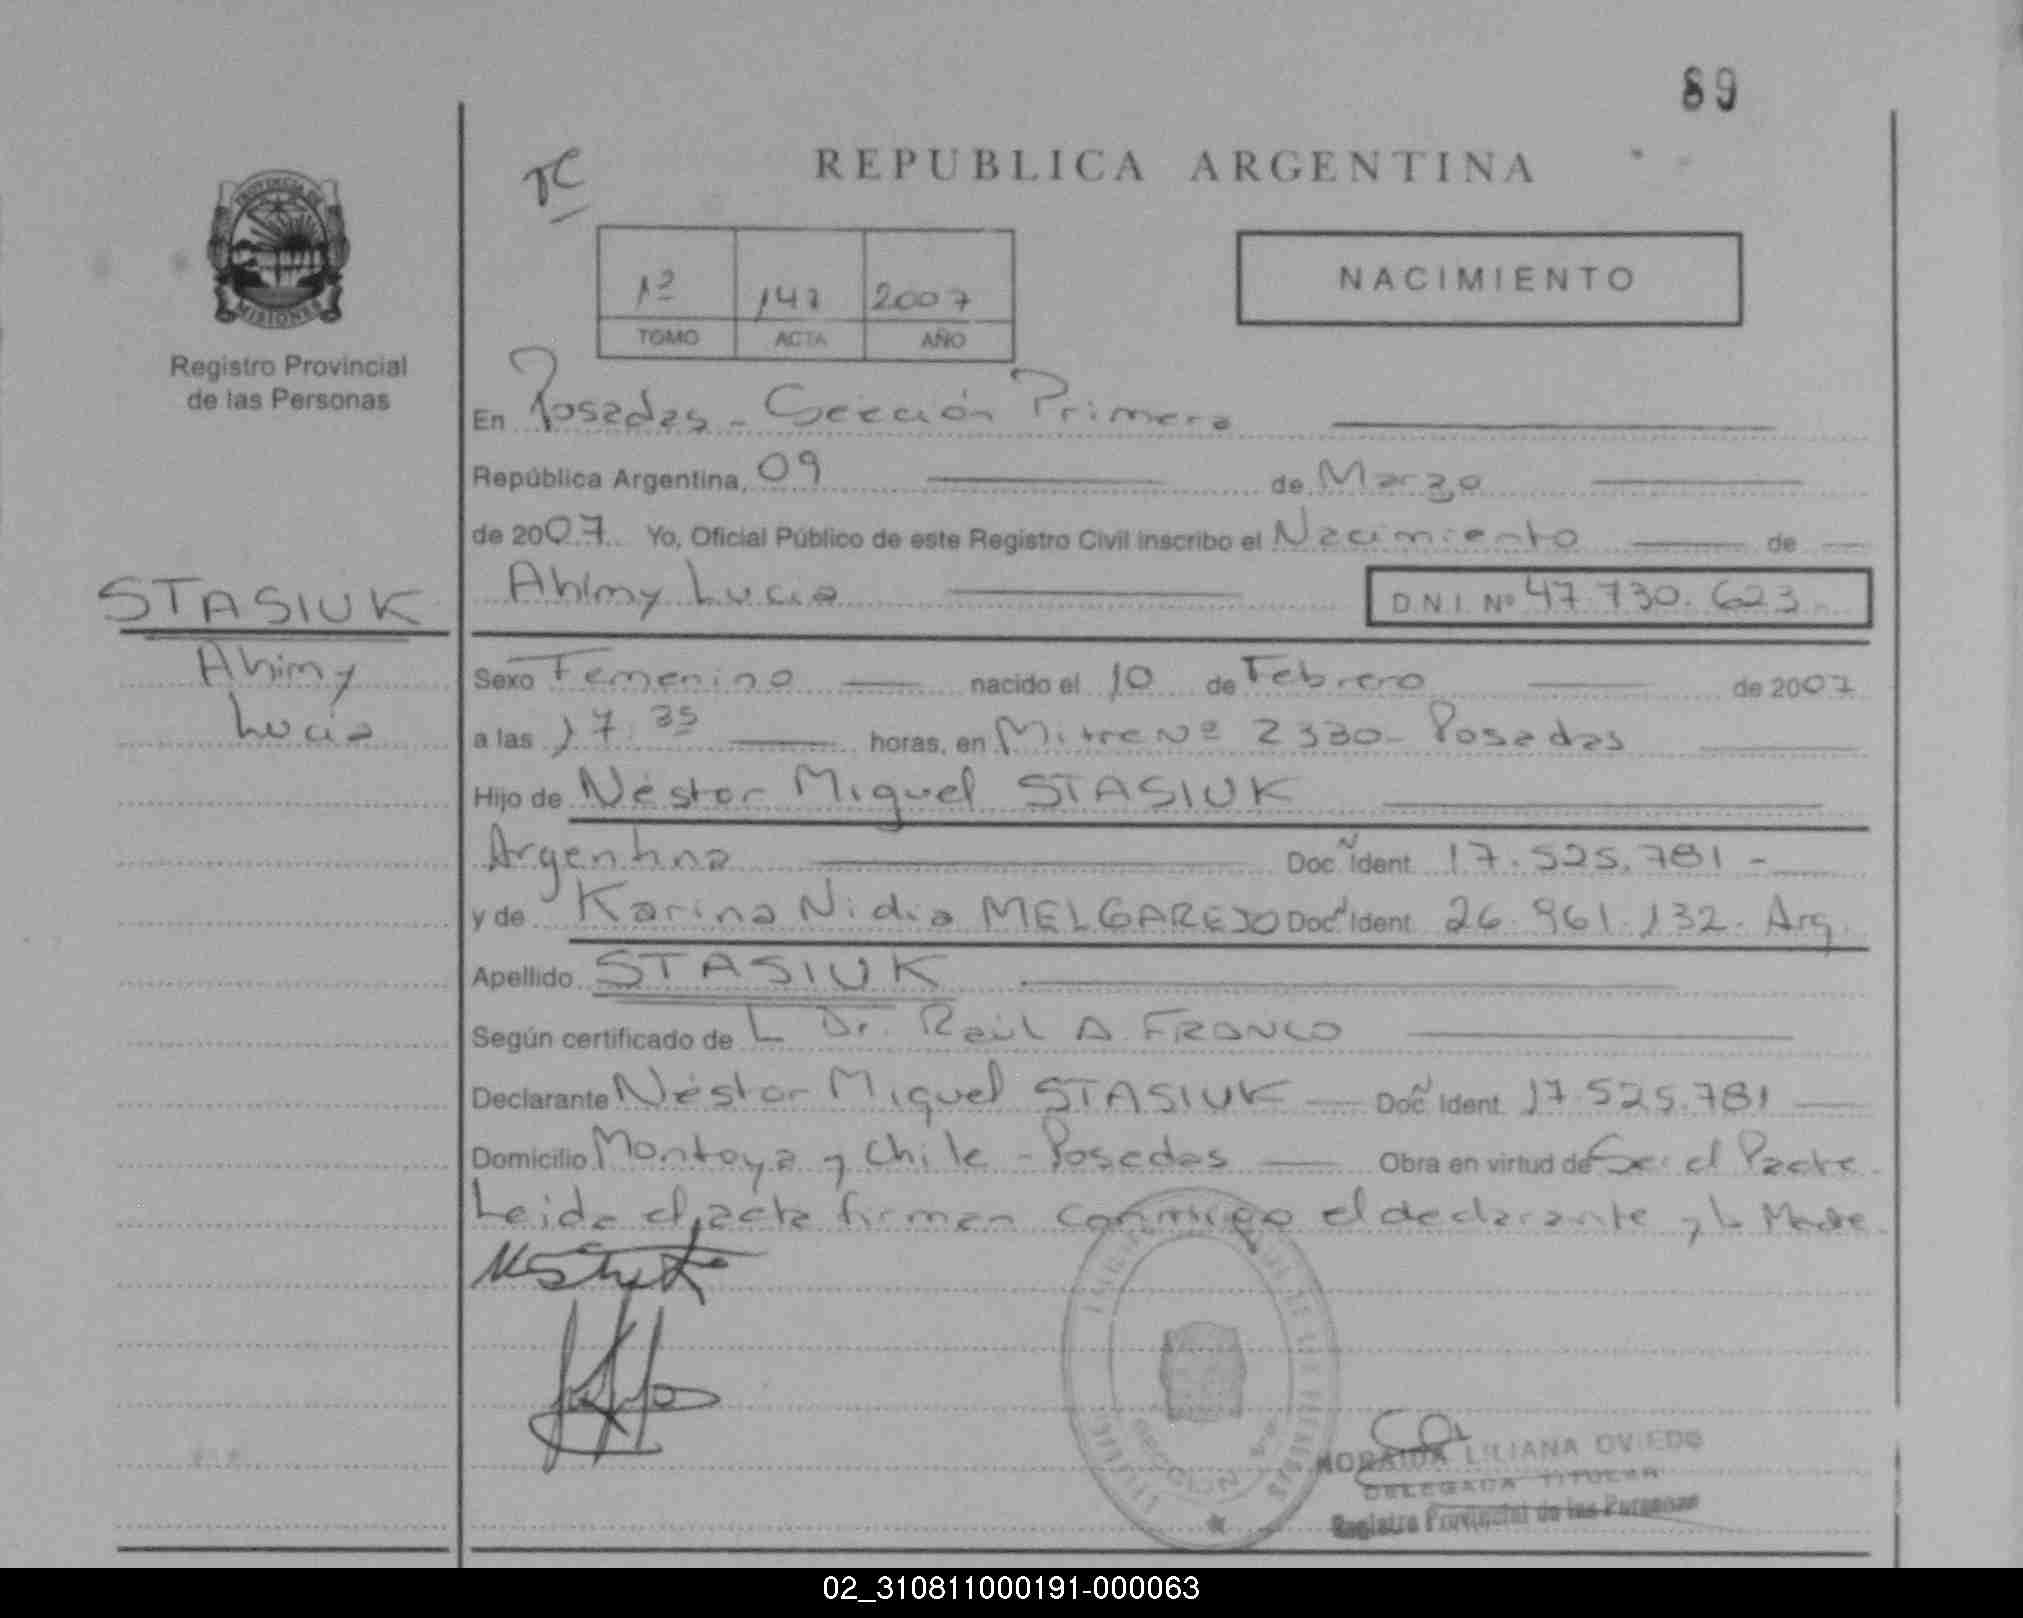 89
REPUBLICA ARGENTINA
PROVINCIA DE
MISIONES
Registro Provincial
de las Personas
1º 2007
TOMO ACTA AÑO
NACIMIENTO
En Posadas - Sección Primera
República Argentina, 09 de Marzo
de 2007 Yo, Oficial Público de este Registro Civil inscribo el Nacimiento de
STASIUK
Ahimy Lucia D.N.I. Nº 47.730.623
Ahimy
Lucia
Sexo Femenino nacido el 10 de Febrero de 2007
a las 17:35 horas, en Mitre Nº 2330 - Posadas
Hijo de Néstor Miguel STASIUK
Argentina Doc. Ident. 17.525.781 -
y de Karina Nidia MELGAREJO Doc. Ident. 26.961.132. Arg.
Apellido STASIUK
Según certificado de L Dr. Raúl A. FRANCO
Declarante Néstor Miguel STASIUK Doc. Ident. 17.525.781
Domicilio Montoya y Chile - Posadas Obra en virtud de Ser el Padre
Leida el acta firman conmigo el declarante y la Madre
SECCION
NORAIDA LILIANA OVIEDO
DELEGADA TITULAR
Registro Provincial de las Personas
02_310811000191-000063